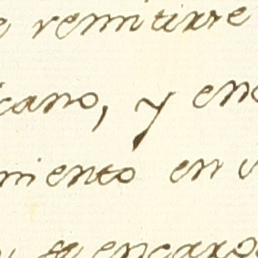 e remitirse
cano, y en
miento en
encargo